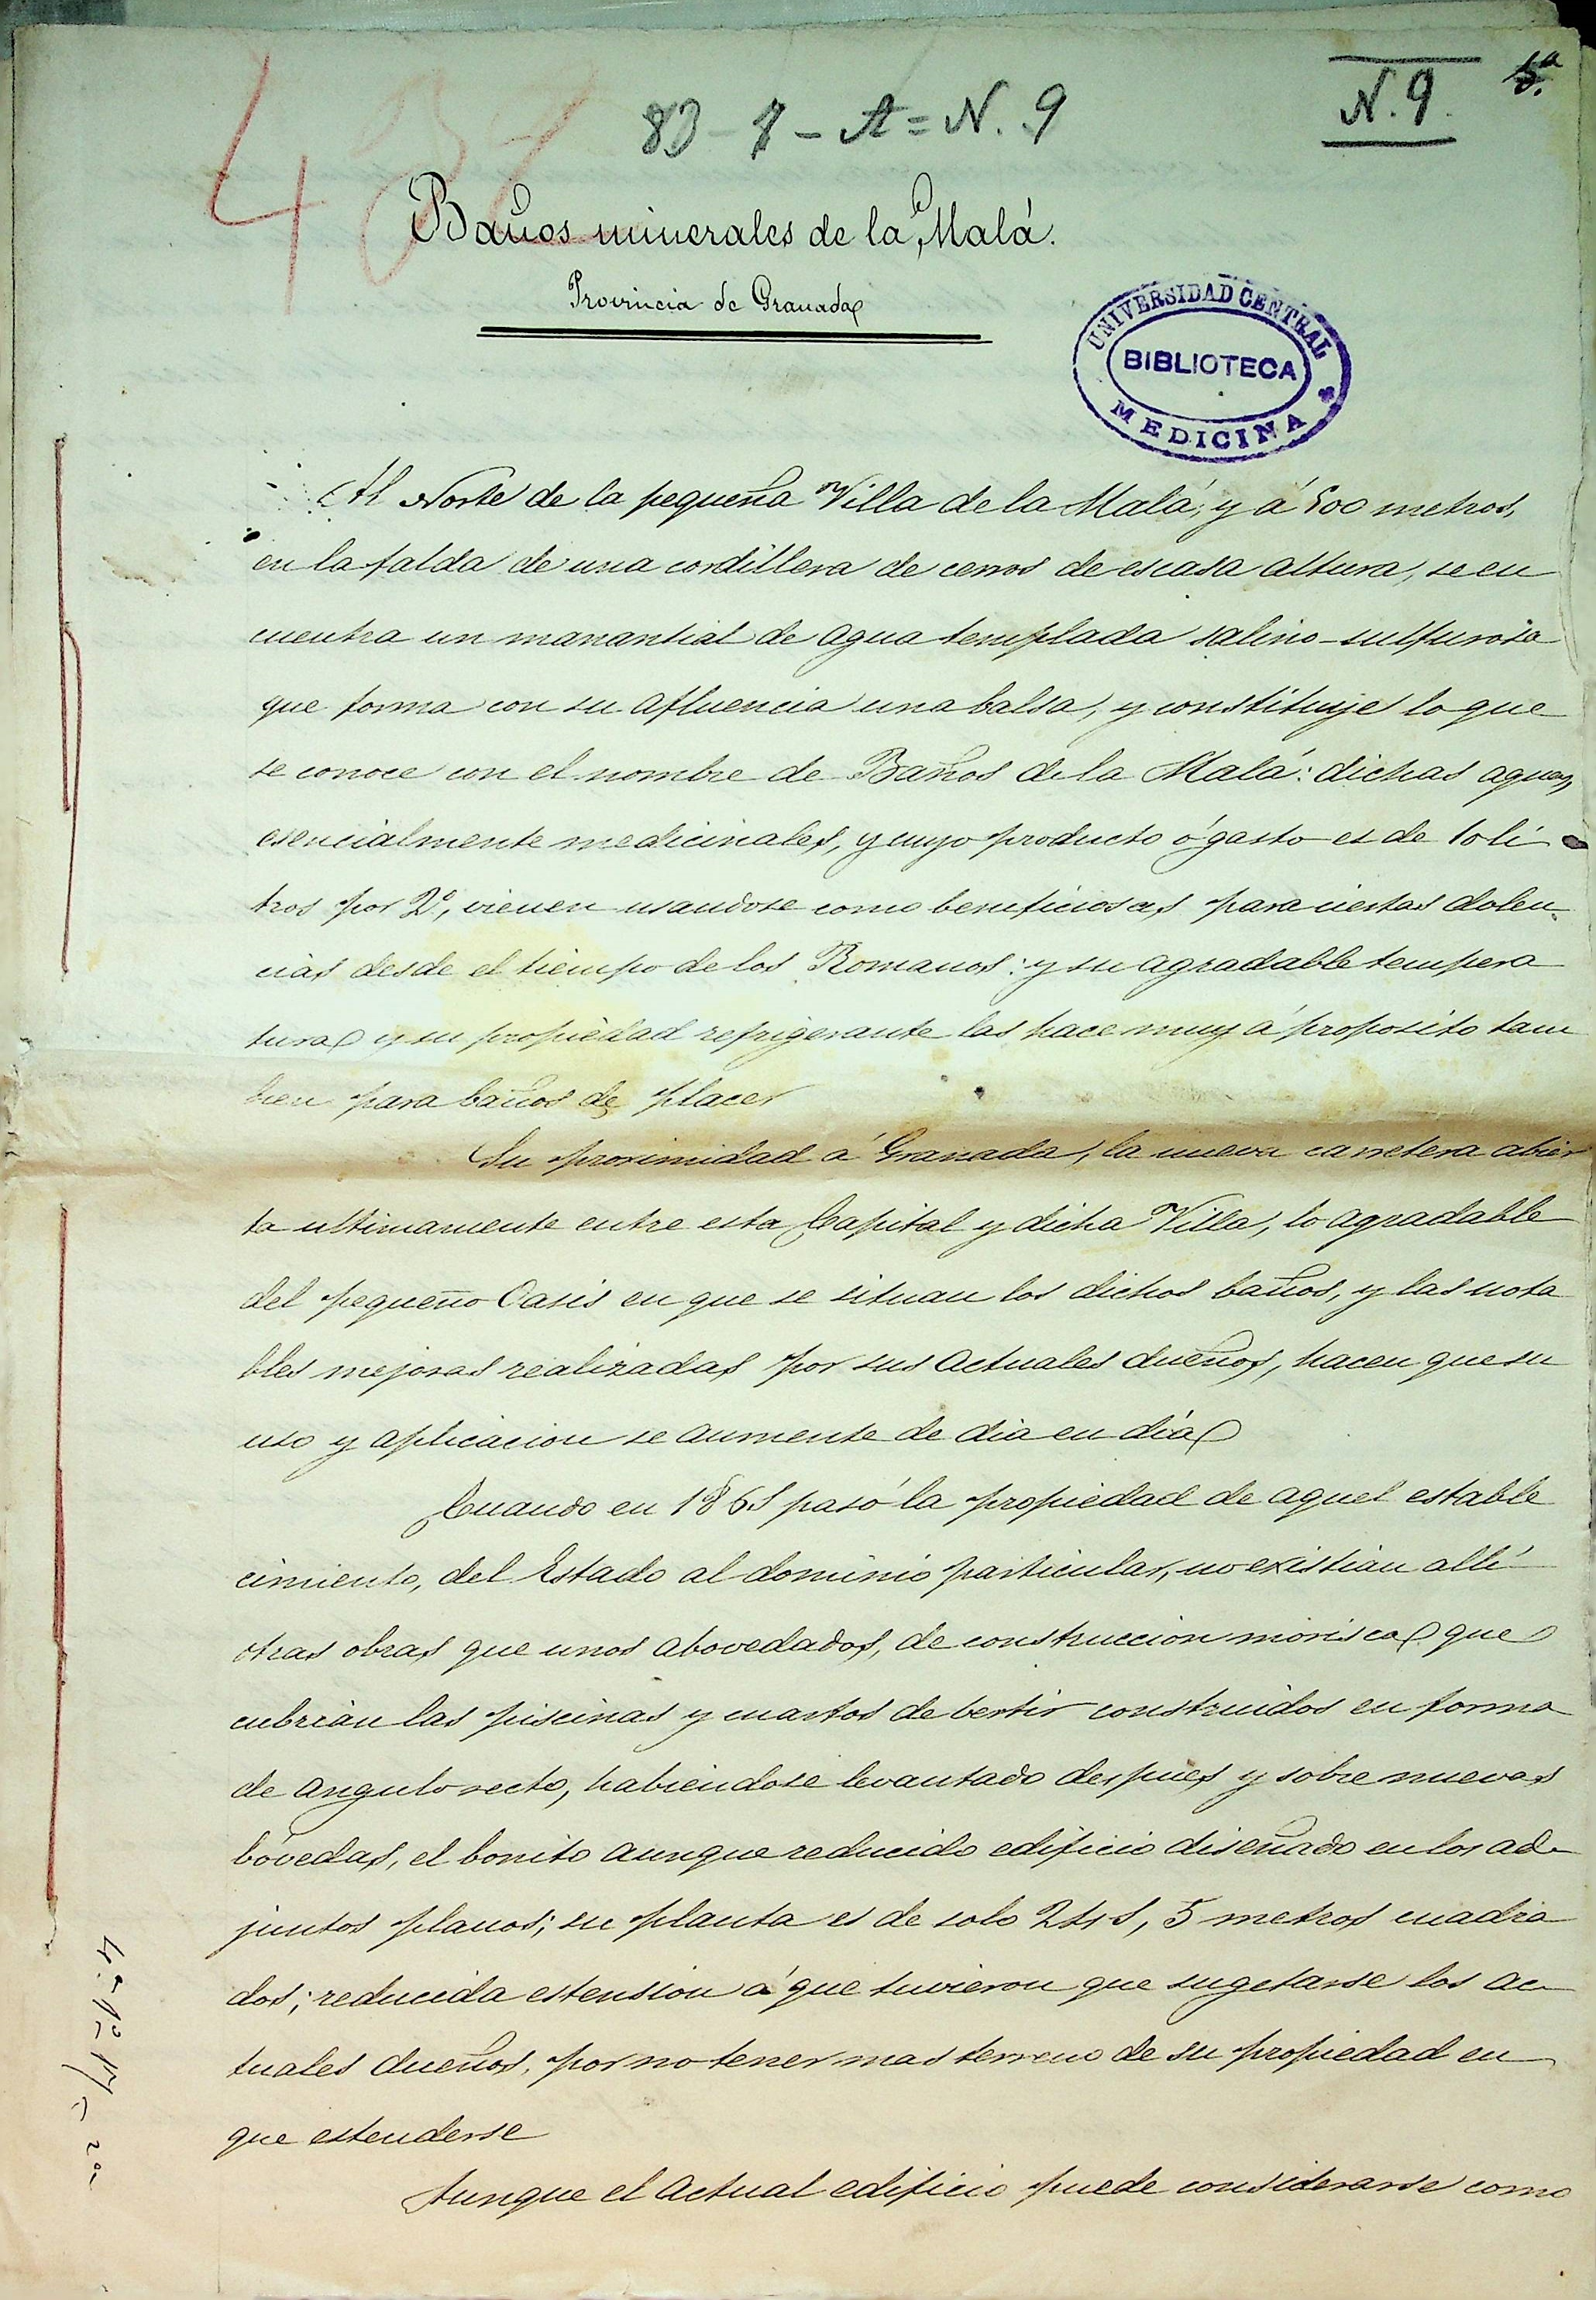 N. 9
83 - 7 - A = N. 9
Baños minerales de la Malá.
Provincia de Granada
UNIVERSIDAD CENTRAL
BIBLIOTECA
MEDICINA
Al Norte de la pequeña Villa de la Malá, y á 500 metros,
en la falda de una cordillera de cerros de escasa altura, se en
cuentra un manantial de agua templada salino-sulfurosa
que forma con su afluencia una balsa, y constituye lo que
se conoce con el nombre de Baños de la Malá: dichas aguas,
esencialmente medicinales, y cuyo producto ó gasto es de 10 li
tros por 2º, vienen usandose como beneficiosas para ciertas dolen
cias desde el tiempo de los Romanos: y su agradable tempera
tura y su propiedad refrigerante las hace muy á proposito tam
bien para baños de placer
Su proximidad á Granada, la nueva carretera abier
ta ultimamente entre esta Capital y dicha Villa, lo agradable
del pequeño Oasis en que se situan los dichos baños, y las nota
bles mejoras realizadas por sus actuales dueños, hacen que su
uso y aplicacion se aumente de dia en día
Cuando en 1865 pasó la propiedad de aquel estable
cimiento, del Estado al dominio particular, no existian allí
otras obras que unos abovedados, de construccion morisca que
cubrian las piscinas y cuartos de bestir construidos en forma
de angulo recto, habiendose levantado despues y sobre nuevas
bóvedas, el bonito aunque reducido edificio diseñado en los ad
juntos planos; su planta es de solo 5 metros cuadra
dos; reducida estension á que tuvieron que sugetarse los ac
tuales dueños, por no tener mas terreno de su propiedad en
que estenderse
Aunque el actual edificio puede considerarse como